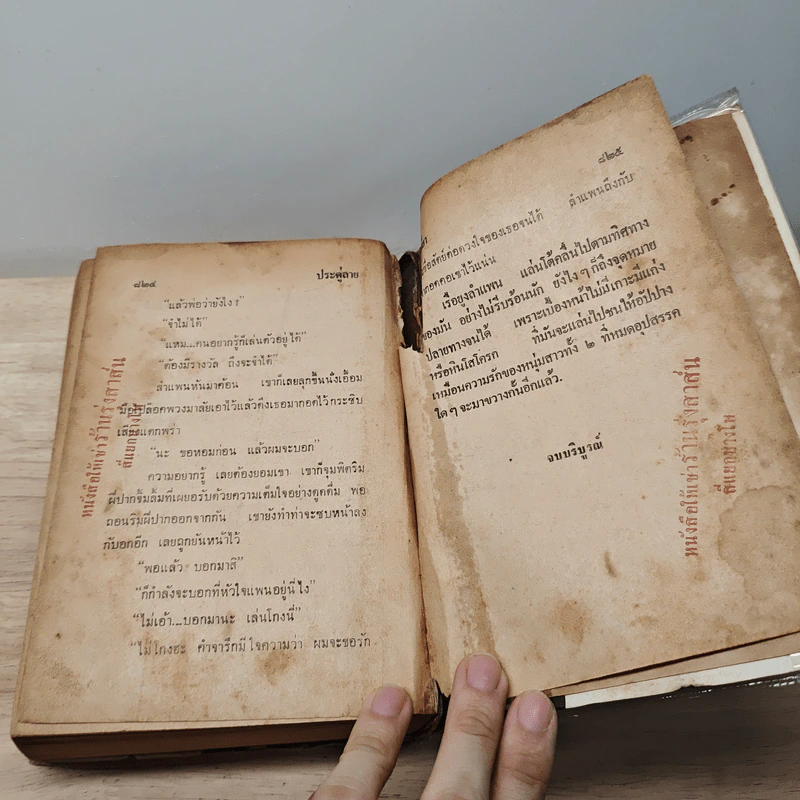 ๘๒๔ ประตู่ลาย
“แล้วพ่อว่ายังไง ?”
“จำไม่ได้”
“แหม...คนอยากรู้ก็เล่นตัวอยู่ได้”
“ต้องมีรางวัล ถึงจะจำได้”
ลำแพนหันมาค้อน เขาก็เลยลุกขึ้นนั่งเอื้อม
มือปลดพวงมาลัยเอาไว้แล้วดึงเธอมากอดไว้ กระซิบ
เสียงแตกพร่า
“นะ ขอหอมก่อน แล้วผมจะบอก”
ความอยากรู้ เลยต้องยอมเขา เขาก็จุมพิตริม
ฝีปากจิ้มลิ้มที่เผยอรับด้วยความเต็มใจอย่างดูดดื่ม พอ
ถอนริมฝีปากออกจากกัน เขายังทำท่าจะซบหน้าลง
กับอกอีก เลยถูกยันหน้าไว้
“พอแล้ว บอกมาสิ”
“ก็กำลังจะบอกที่หัวใจแพนอยู่นี่ไง”
“ไม่เอ้า...บอกมานะ เล่นโกงนี่”
“ไม่โกงฮะ คำจารึกมีใจความว่า ผมจะขอรัก
หนังสือให้เช่าร้านรุ่งสาส์น
สี่แยกบางโพ
๘๒๕
ซื่อสัตย์ต่อดวงใจของเธอจนได้ ลำแพนถึงกับ
กอดคอเขาไว้แน่น
เรือยูงลำแพน แล่นโต้คลื่นไปตามทิศทาง
ของมัน อย่างไม่รีบร้อนนัก ยังไง ๆ ก็ถึงจุดหมาย
ปลายทางจนได้ เพราะเบื้องหน้าไม่มีเกาะมีแก่ง
หรือหินโสโครก ที่มันจะแล่นไปชนให้อัปปาง
เหมือนความรักของหนุ่มสาวทั้ง ๒ ที่หมดอุปสรรค
ใด ๆ จะมาขวางกั้นอีกแล้ว.
จบบริบูรณ์
หนังสือให้เช่าร้านรุ่งสาส์น
สี่แยกบางโพ